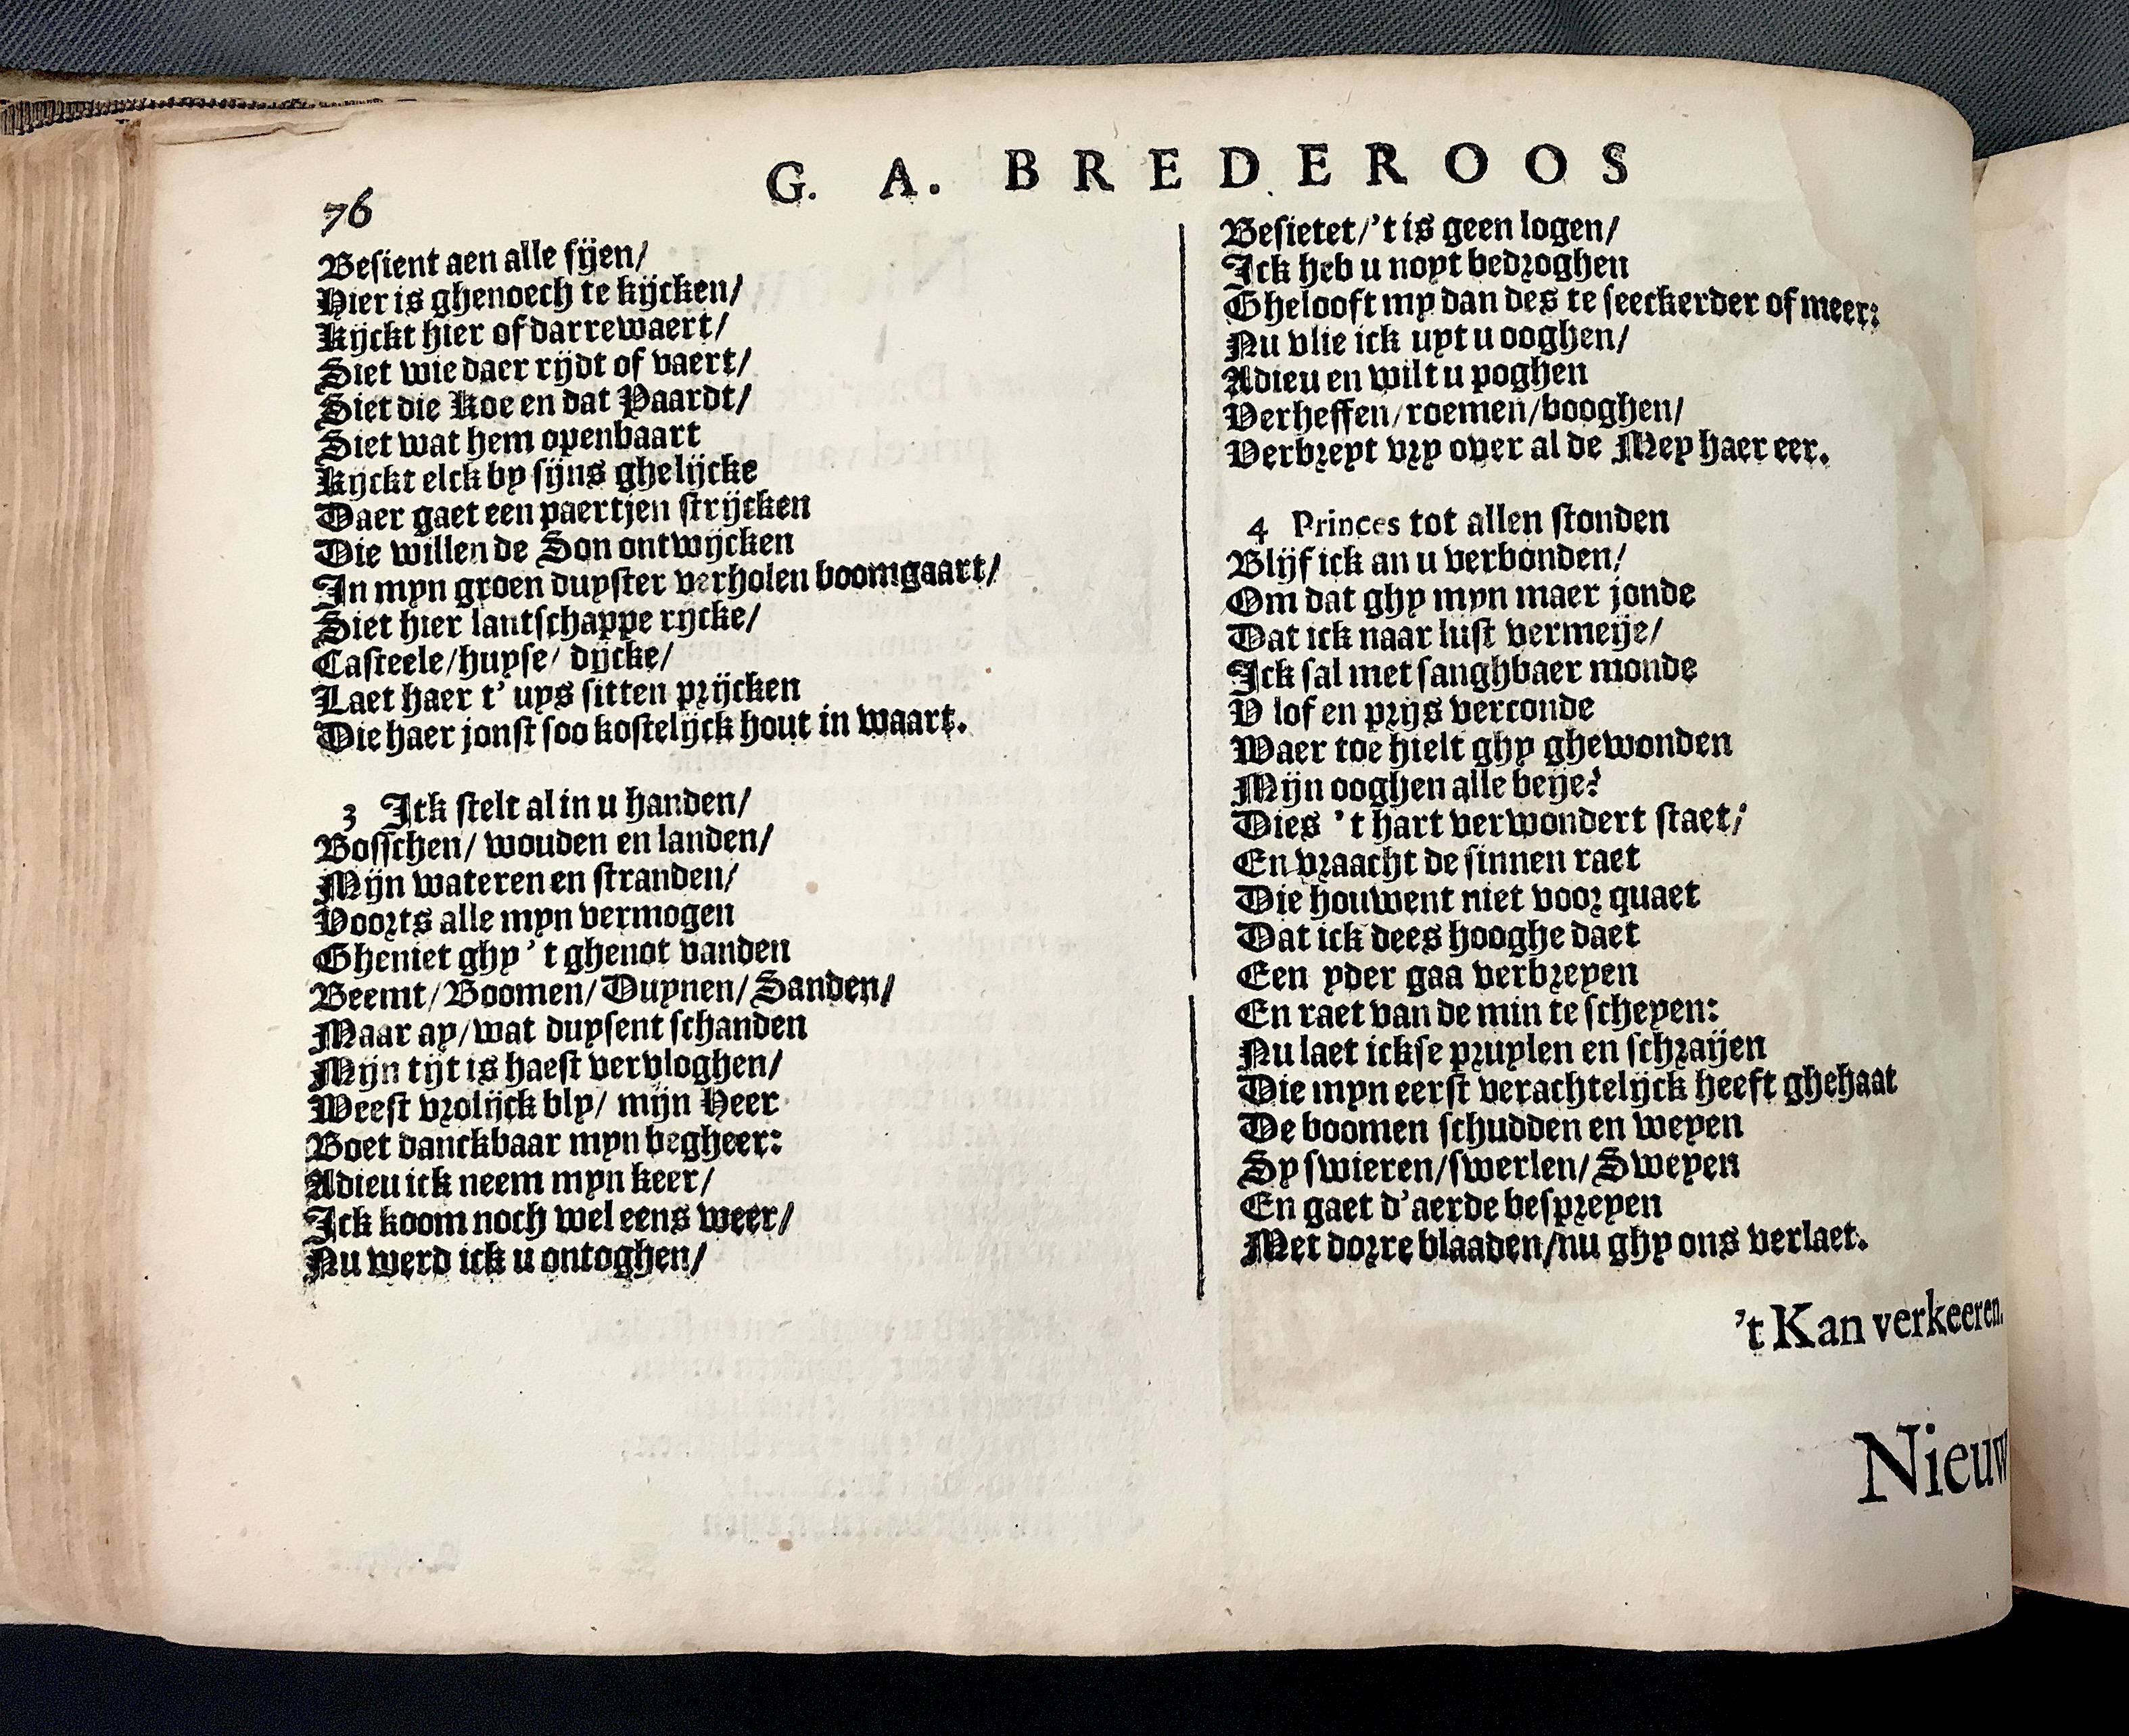 G. A. BREDEROOS
76
Besient aen alle sijen/
Hier is ghenoech te kijcken/
Kijckt hier of darrewaert/
Siet wie daer rijdt of vaert/
Siet die Koe en dat Paardt/
Siet wat hem openbaart
Kijckt elck by sijns ghelijcke
Daer gaet een paertjen strijcken
Die willen de Son ontwijcken
In myn groen duyster verholen boomgaart/
Siet hier lantschappe rijcke/
Casteele/huyse/ dijcke/
Laet haer t' uys sitten prijcken
Die haer jonst soo kostelijck hout in waart.
3 Ick stelt al in u handen/
Bosschen/ wouden en landen/
Mijn wateren en stranden/
Voorts alle myn vermogen
Gheniet ghy 't ghenot vanden
Beemt/Boomen/Duynen/Sanden/
Maar ay/wat duysent schanden
Mijn tijt is haest vervloghen/
Weest vrolijck bly/ mijn Heer
Boet danckbaar myn begheer:
Adieu ick neem myn keer/
Ick koom noch wel eens weer/
Nu werd ick u ontoghen/
Besietet/'t is geen logen/
Ick heb u noyt bedroghen
Ghelooft my dan des te seeckerder of meer:
Nu vlie ick uyt u ooghen/
Adieu en wilt u poghen
Verheffen/roemen/booghen/
Verbreyt vry over al de Mey haer eer.
4 Princes tot allen stonden
Blijf ick an u verbonden/
Om dat ghy myn maer jonde
Dat ick naar lust vermeije/
Ick sal met sanghbaer monde
V lof en prijs verconde
Waer toe hielt ghy ghewonden
Mijn ooghen alle beije?
Dies 't hart verwondert staet;
En vraacht de sinnen raet
Die houwent niet voor quaet
Dat ick dees hooghe daet
Een yder gaa verbreyen
En raet van de min te scheyen:
Nu laet ickse pruylen en schraijen
Die myn eerst verachtelijck heeft ghehaat
De boomen schudden en weyen
Sy swieren/swerlen/Sweyen
En gaet d'aerde bespreyen
Met dorre blaaden/nu ghy ons verlaet.
't Kan verkeeren.
Nieuw